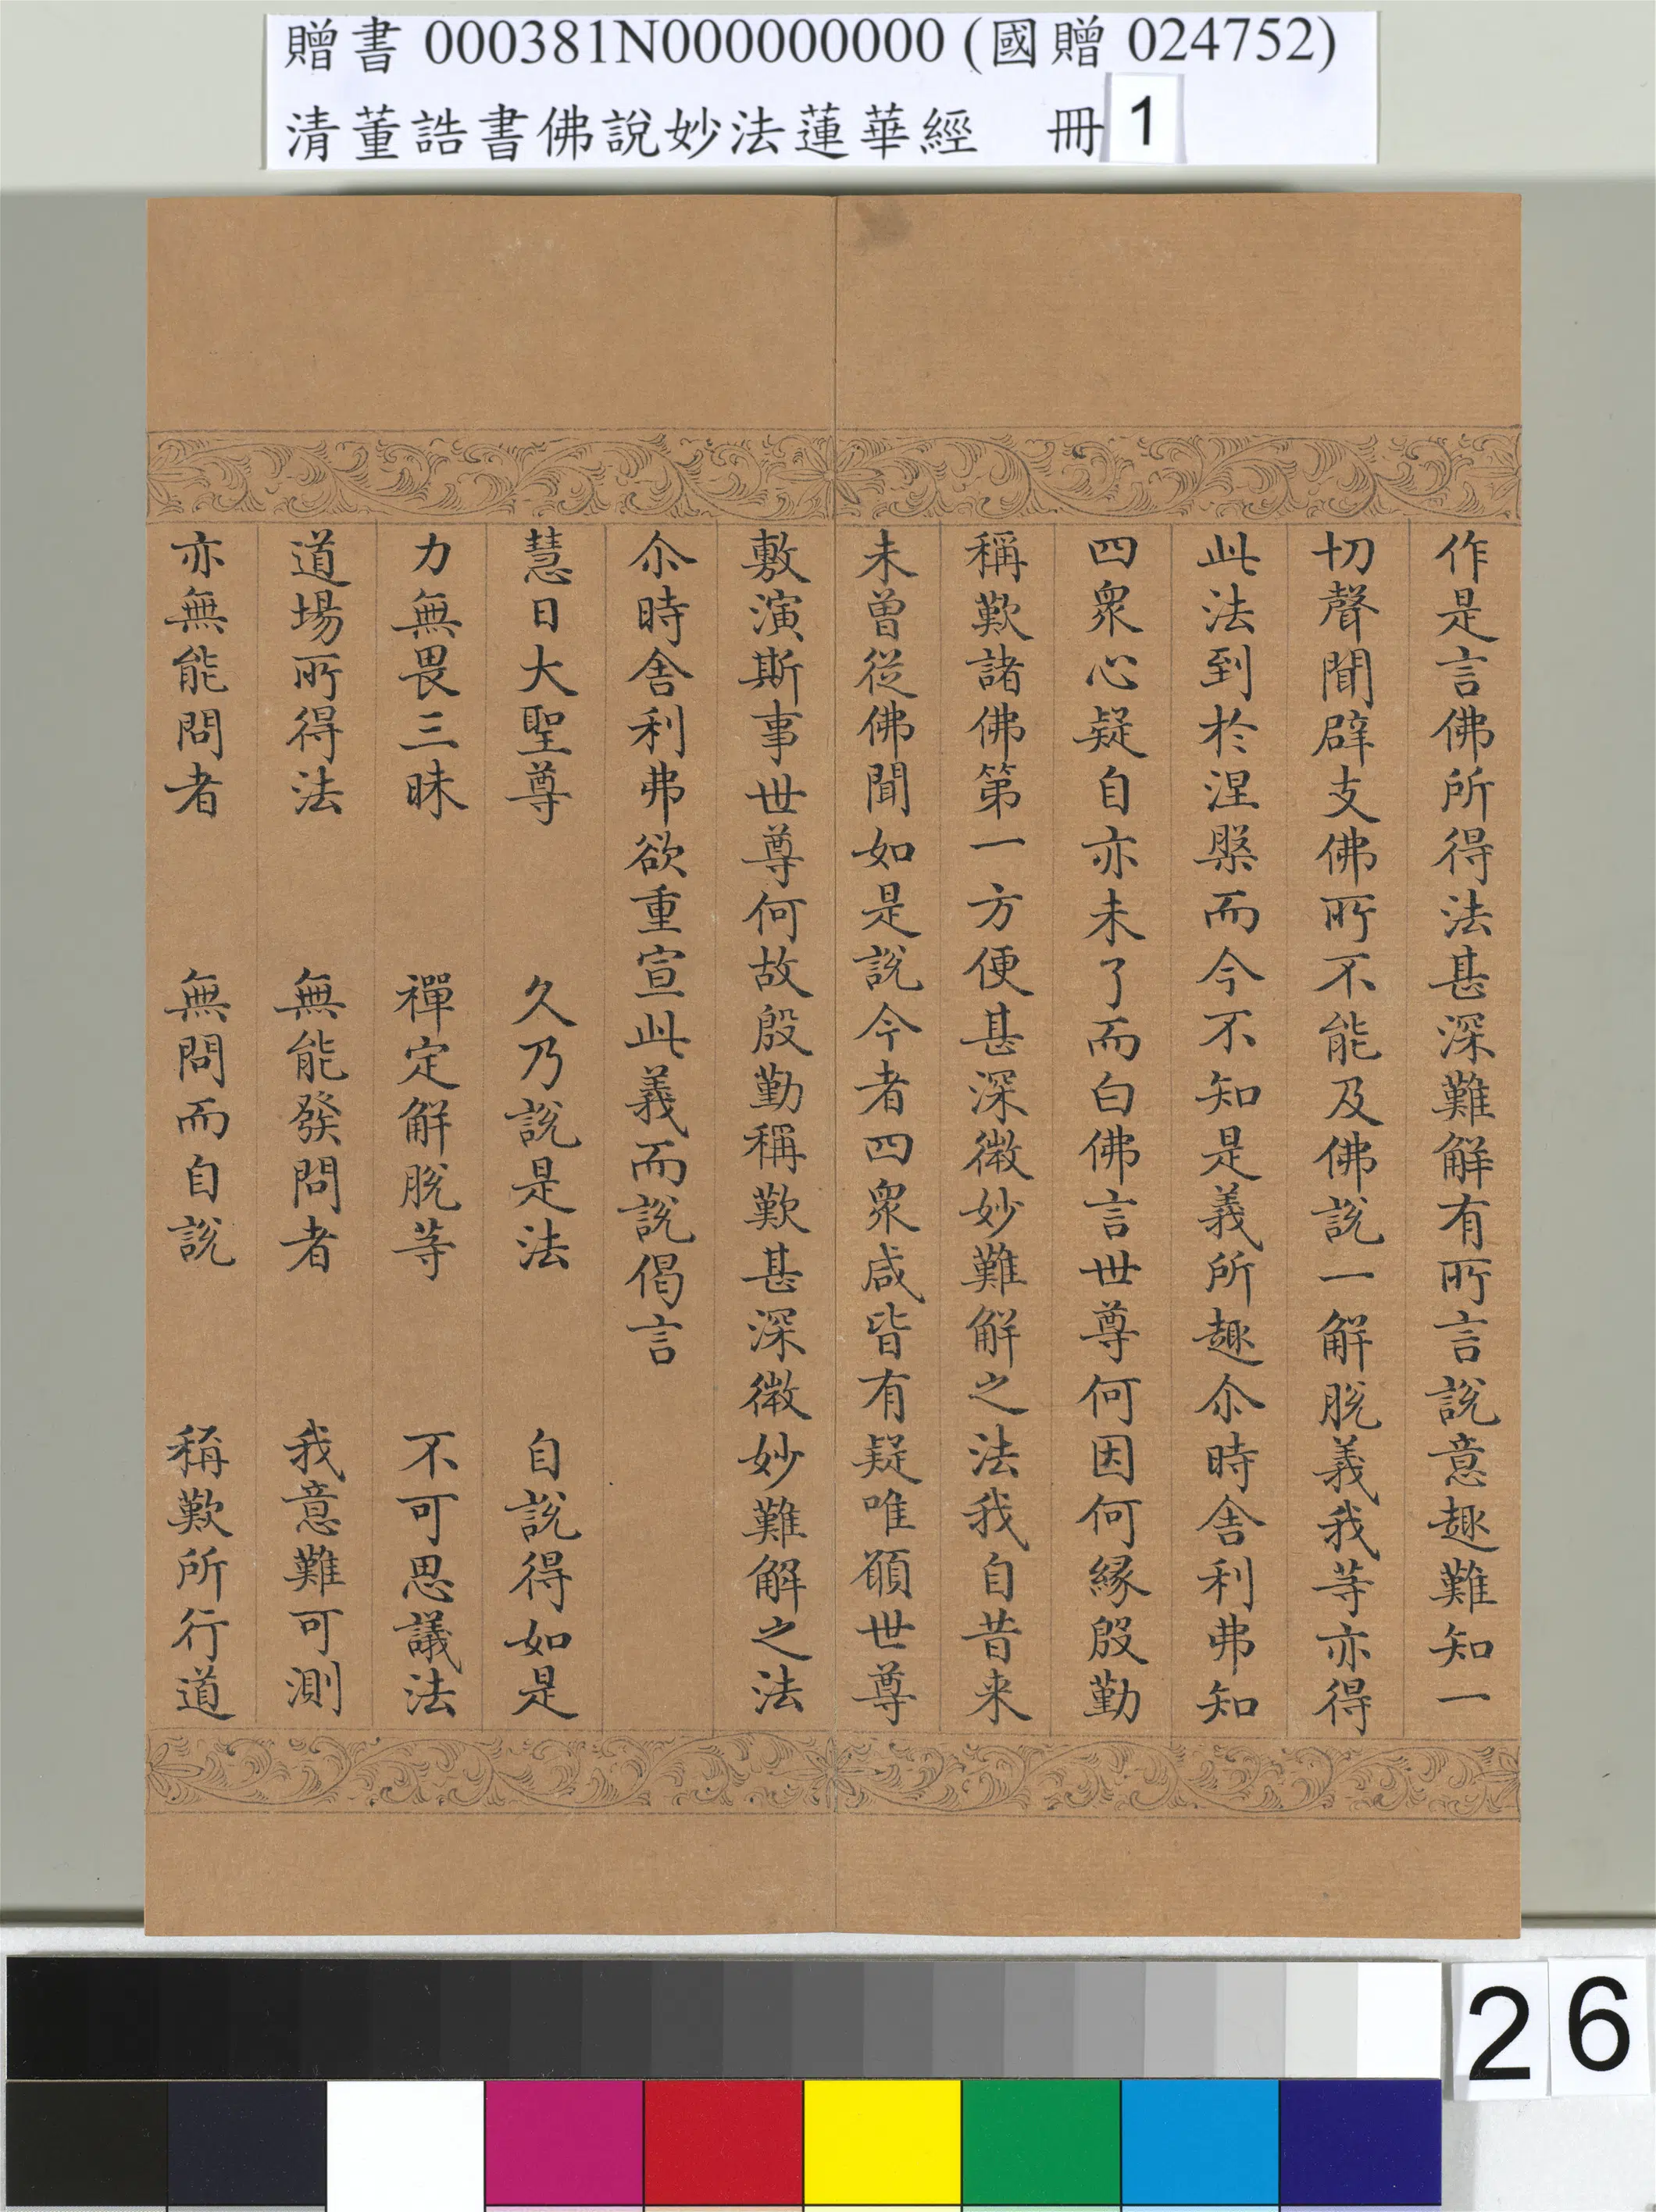 贈書 000381N000000000 (國贈 024752)
清董誥書佛說妙法蓮華經 冊 1
作是言佛所得法甚深難解有所言說意趣難知一
切聲聞辟支佛所不能及佛說一解脫義我等亦得
此法到於涅槃而今不知是義所趣尒時舍利弗知
四衆心疑自亦未了而白佛言世尊何因何緣殷勤
稱歎諸佛第一方便甚深微妙難解之法我自昔来
未曾從佛聞如是說今者四衆咸皆有疑唯願世尊
敷演斯事世尊何故殷勤稱歎甚深微妙難解之法
尒時舍利弗欲重宣此義而說偈言
慧日大聖尊 久乃說是法 自說得如是
力無畏三昧 禪定解脫等 不可思議法
道場所得法 無能發問者 我意難可測
亦無能問者 無問而自說 稱歎所行道
26